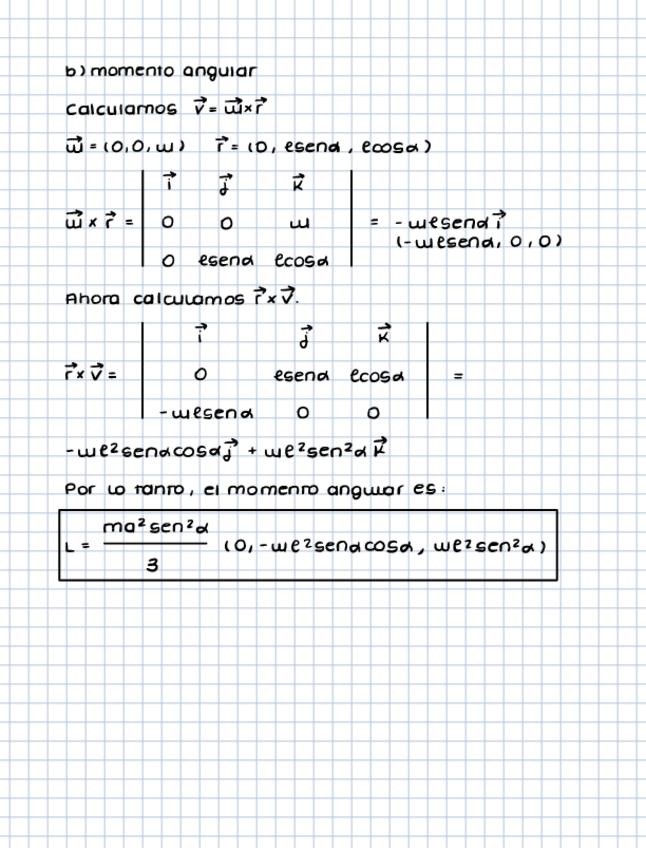 b) momento angular
Calculamos v⃗ = w⃗ x r⃗
w⃗ = (0,0,w) r⃗ = (0, esenα, ecosα)
i⃗ j⃗ k⃗
w⃗ x r⃗ = 0 0 w = -wesenα i⃗
(-wesenα, 0, 0)
0 esenα ecosα
Ahora calculamos r⃗ x v⃗.
i⃗ j⃗ k⃗
r⃗ x v⃗ = 0 esenα ecosα =
-wesenα 0 0
-we²senαcosα j⃗ + we²sen²α k⃗
Por lo tanto, el momento angular es:
L = ma²sen²α / 3 (0, -we²senαcosα, we²sen²α)